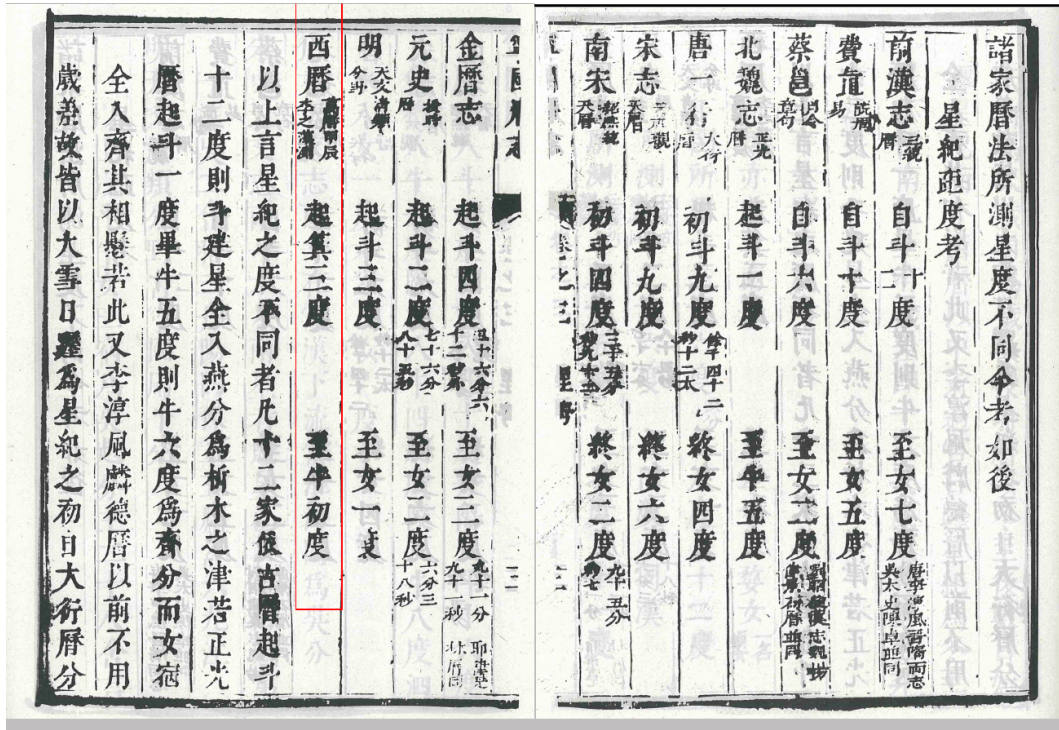 諸家曆法所測星度不同今考如後
星紀距度考
前漢志 三統曆 自斗十二度 至女七度 唐李淳風晉隋兩志吳太史陳卓並同
費直 易 自斗十度 至女五度
蔡邕 月令章句 自斗六度 至女二度
北魏志 正光曆 起斗一度 至牛五度
唐一行 大衍曆 初斗九度 餘千四十二秒十二太 終女四度
宋志 天曆 初斗九度 終女六度
南宋 紹熙統天曆 初斗四度 終女二度 九十五分秒七
金曆志 起斗四度 至女二度 九十一分九十一秒
元史 授時曆 起斗二度 七十六分八十五秒 至女二度 六分三十八秒
明 天文清類分野 起斗三度 至女一度
西曆 萬曆丙辰李之藻測 起箕三度 至牛初度
以上言星紀之度不同者凡十二家伹古曆起斗
十二度則斗建星全入燕分爲析木之津若正光
曆起斗一度畢牛五度則牛六度爲齊分而女宿
全入齊其相懸若此又李淳風麟德曆以前不用
歲差故皆以大雪日躔爲星紀之初日大衍曆分